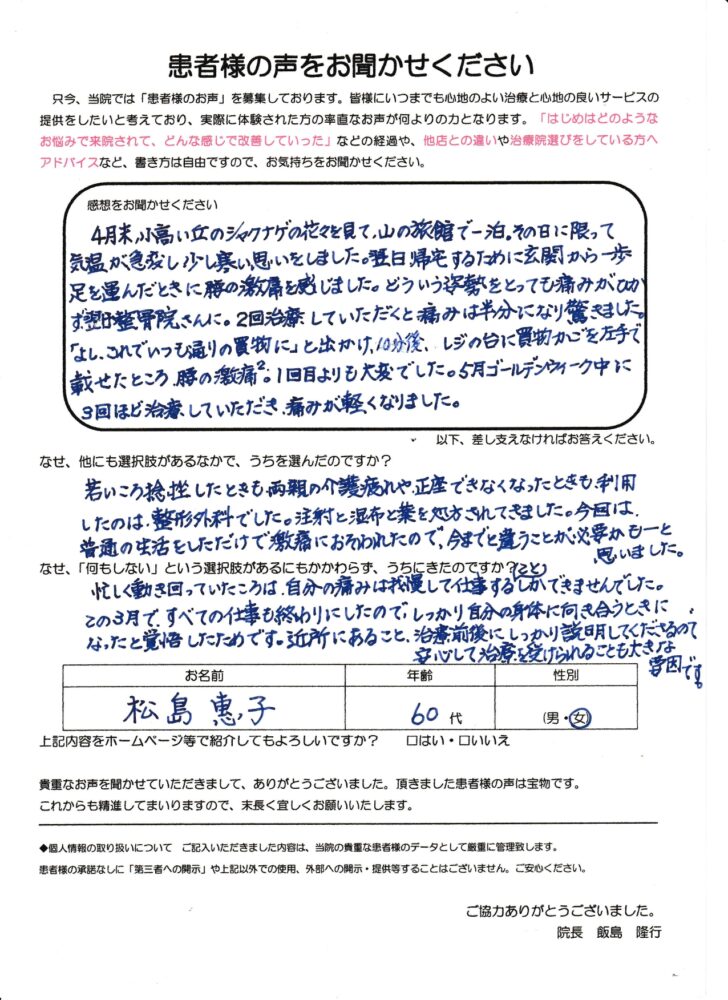 患者様の声をお聞かせください
只今、当院では「患者様のお声」を募集しております。皆様にいつまでも心地のよい治療と心地の良いサービスの
提供をしたいと考えており、実際に体験された方の率直なお声が何よりの力となります。「はじめはどのような
お悩みで来院されて、どんな感じで改善していった」などの経過や、他店との違いや治療院選びをしている方へ
アドバイスなど、書き方は自由ですので、お気持ちをお聞かせください。
感想をお聞かせください
4月末、小高い丘のシャクナゲの花々を見て、山の旅館で一泊。その日に限って
気温が急変し少し寒い思いをしました。翌日帰宅するために玄関から一歩
足を運んだときに腰の激痛を感じました。どういう姿勢をとっても痛みがひか
ず翌日整骨院さんに。2回治療していただくと痛みは半分になり驚きました。
「よし、これでいつも通りの買物に」と出かけ、10分後、レジの台に買物かごを左手で
載せたところ腰の激痛2。1回目よりも大変でした。5月ゴールデンウィーク中に
3回ほど治療していただき、痛みが軽くなりました。
以下、差し支えなければお答えください。
なぜ、他にも選択肢があるなかで、うちを選んだのですか?
若いころ捻挫したときも両親の介護疲れや、正座できなくなったときも、利用
したのは、整形外科でした。注射と湿布と薬を処方されてきました。今回は、
普通の生活をしただけで激痛におそわれたので、今までと違うことが必要かも―と
思いました。
なぜ、「何もしない」という選択肢があるにもかかわらず、うちにきたのですか?
忙しく動き回っていたころは、自分の痛みは我慢して仕事する(こと)しかできませんでした。
この3月で、すべての仕事も終わりにしたので、しっかり自分の身体に向き合うときに
なったと覚悟したためです。近所にあること、治療前後にしっかり説明してくださるので
安心して治療を受けられることも大きな
要因です。
お名前 年齢 性別
松島 惠子 60代 (男・女)
上記内容をホームページ等で紹介してもよろしいですか? □はい・□いいえ
貴重なお声を聞かせていただきまして、ありがとうございました。頂きました患者様の声は宝物です。
これからも精進してまいりますので、末長く宜しくお願いいたします。
◆個人情報の取り扱いについて ご記入いただきました内容は、当院の貴重な患者様のデータとして厳重に管理致します。
患者様の承諾なしに「第三者への開示」や上記以外での使用、外部への開示・提供等することはございません。ご安心ください。
ご協力ありがとうございました。
院長 飯島 隆行